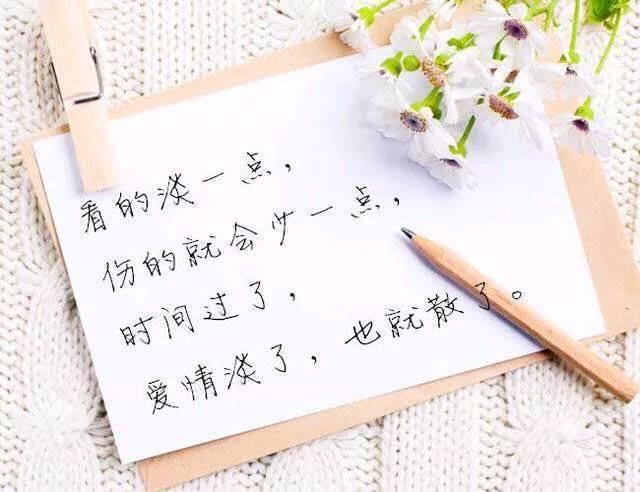 看的淡一点，
伤的就会少一点，
时间过了，
爱情淡了，也就散了。